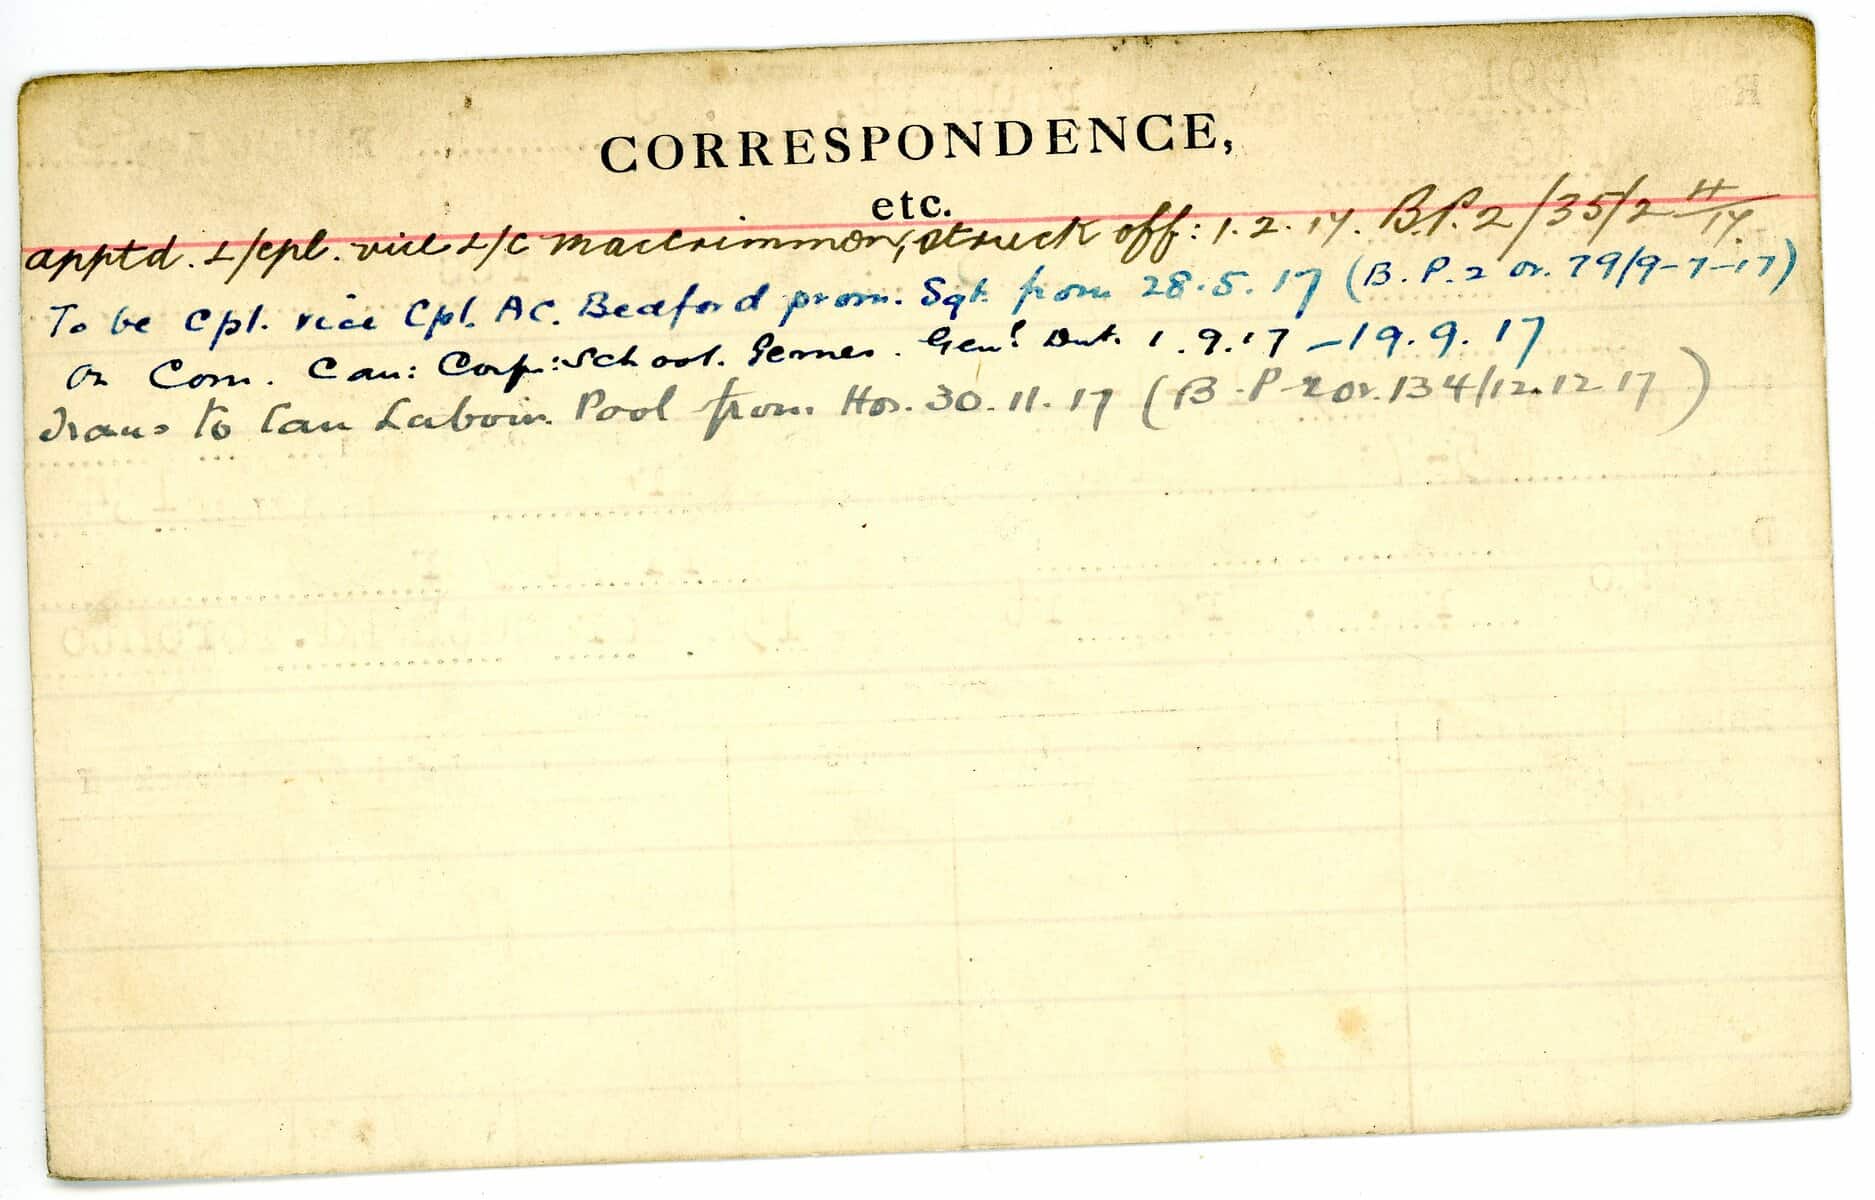 CORRESPONDENCE,
etc.
apptd. L/cpl. vice L/C MacCrimmon, struck off: 1.2.17. B.P.2/35/2 4/17
To be Cpl. vice Cpl. A.C. Bedford prom. Sgt. from 28.5.17 (B.P.2 or. 79/9-7-17)
On Com. Can: Corp: School. Genl. Dut. 1.9.17 – 19.9.17
Trans to Can Labour Pool from Hos. 30.11.17 (B.P.2 or. 134/12.12.17)